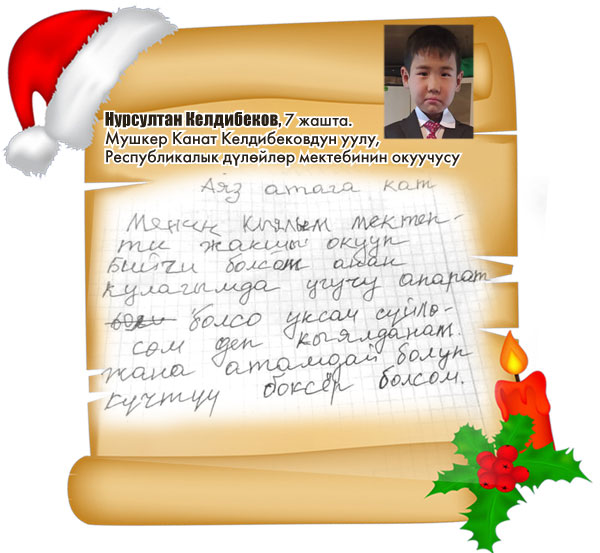 Нурсултан Келдибеков, 7 жашта.
Мушкер Канат Келдибековдун уулу,
Республикалык дүлөйлөр мектебинин окуучусу
Аяз атага кат
Менин кыялым мектеп-
ти жакшы окуп
Бийчи болсом анан
кулагымда угучу апарат
болсо уксам сүйлө-
сөм деп кыялданам.
жана атамдай болуп
күчтүү боксёр болсом.